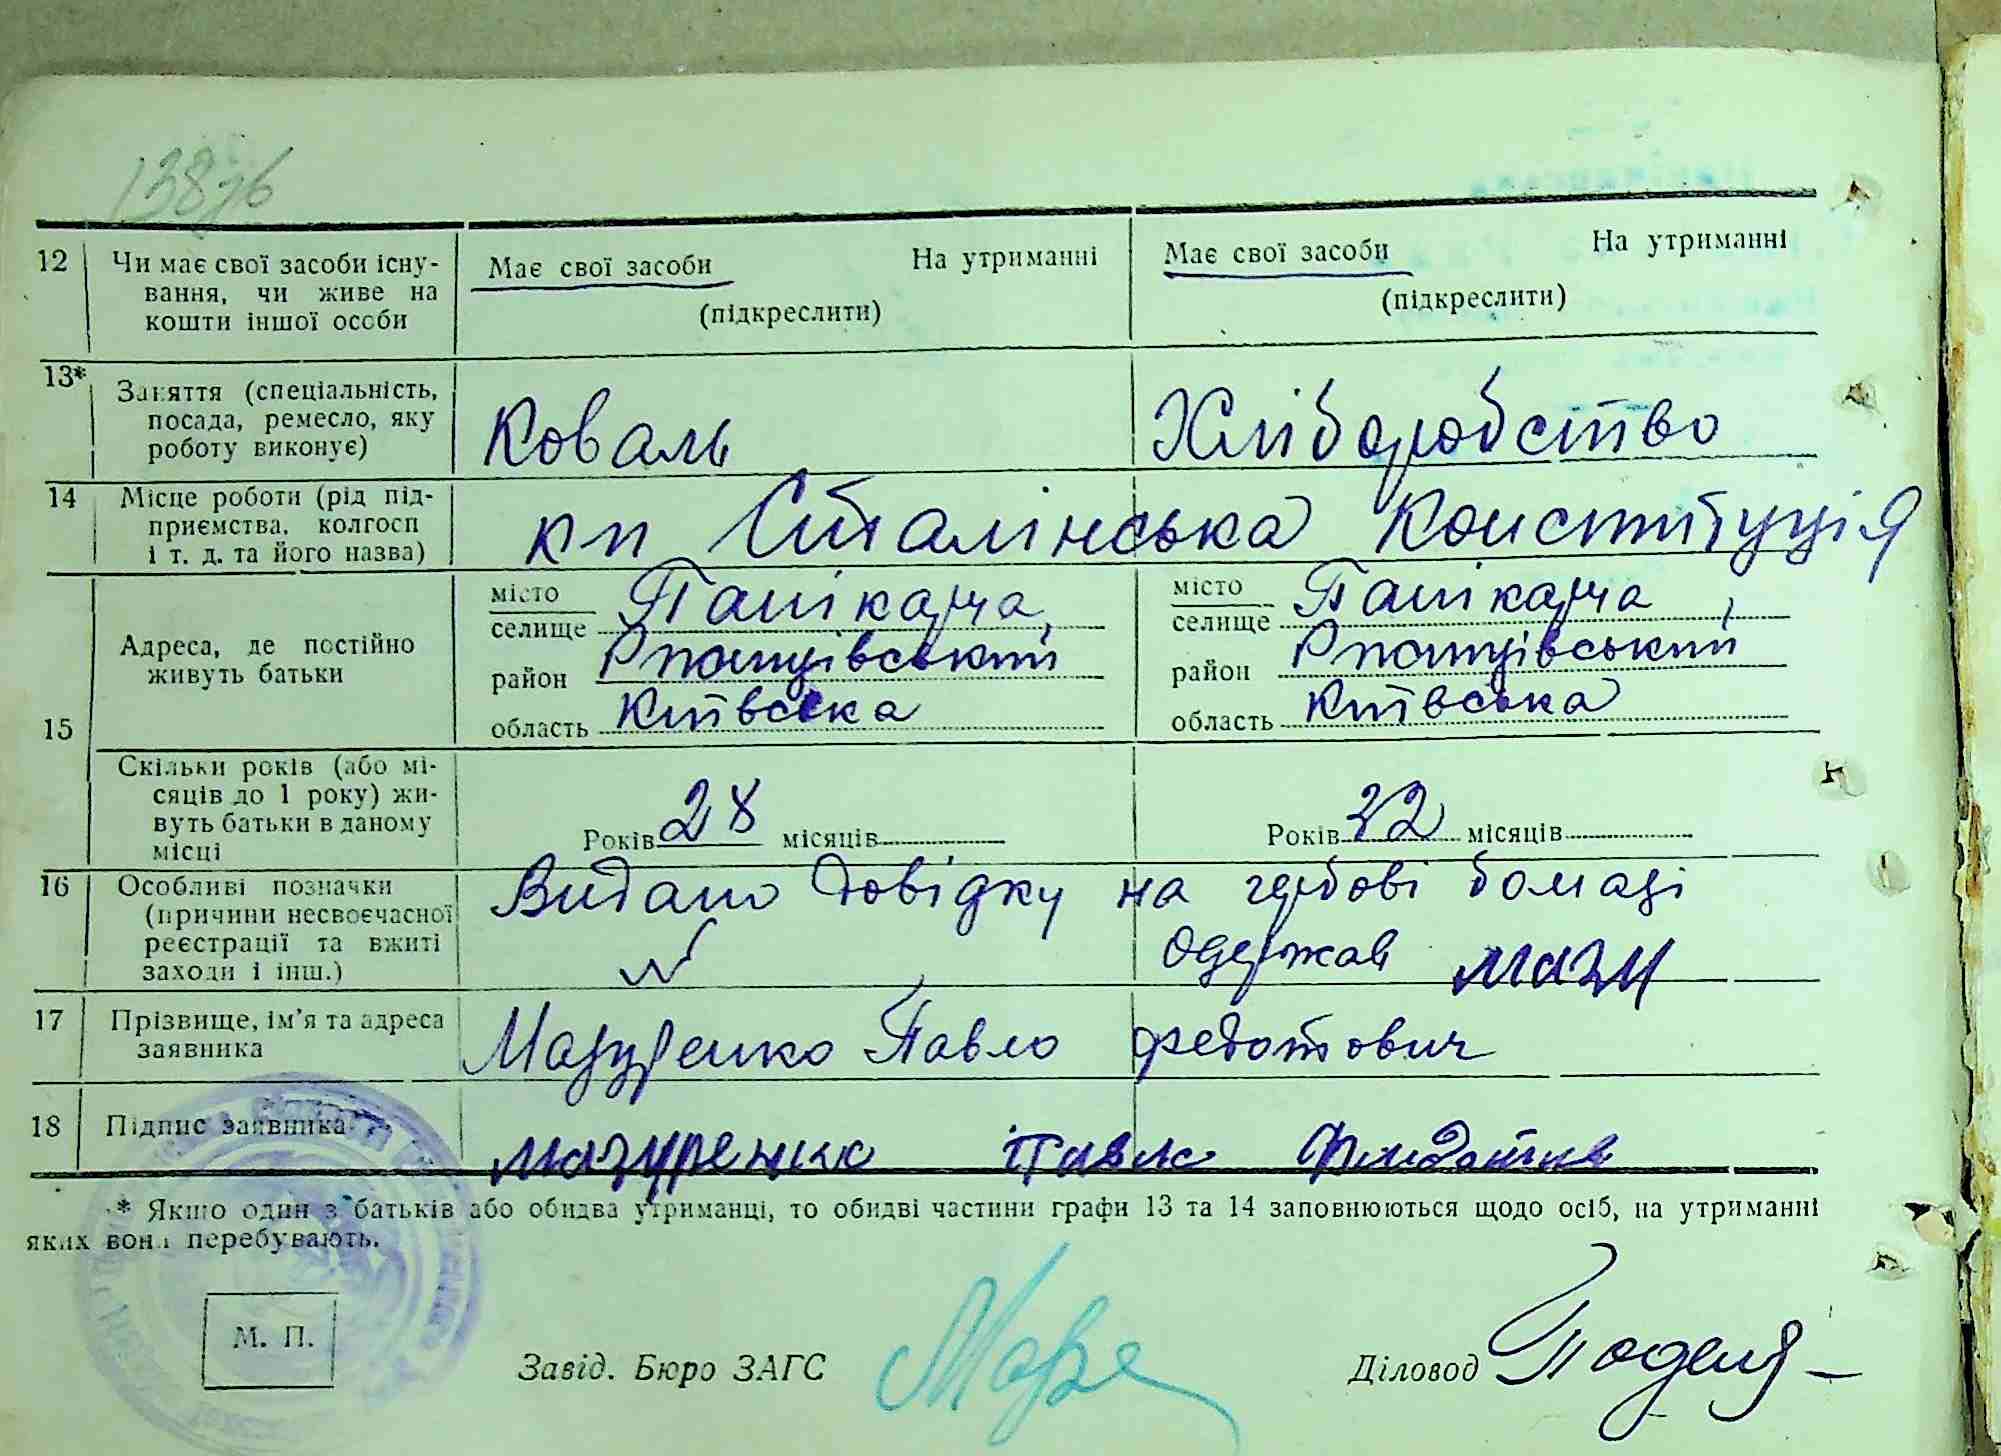 138зб
12 Чи має свої засоби існу- Має свої засоби На утриманні Має свої засоби На утриманні
вання, чи живе на (підкреслити) (підкреслити)
кошти іншої особи
13* Заняття (спеціальність,
посада, ремесло, яку Коваль Хліборобство
роботу виконує)
14 Місце роботи (рід під-
приємства, колгосп кп Сталінська Конституція
і т. д. та його назва)
15 Адреса, де постійно
живуть батьки
місто
селище Пашікарча, місто
селище Пашікарча,
район район
область Київська область Київська
Скільки років (або мі-
сяців до 1 року) жи-
вуть батьки в даному Років 28 місяців Років 22 місяців
місці
16 Особливі позначки Видано Довідку на гербові бомазі
(причини несвоєчасної
реєстрації та вжиті Одержав мазу
заходи і інш.)
17 Прізвище, ім'я та адреса Мазуренко Павло Федотович
заявника
18 Підпис заявника мазуренко Павло
* Якщо один з батьків або обидва утриманці, то обидві частини графи 13 та 14 заповнюються щодо осіб, на утриманні
яких вони перебувають.
М. П.
Завід. Бюро ЗАГС Діловод